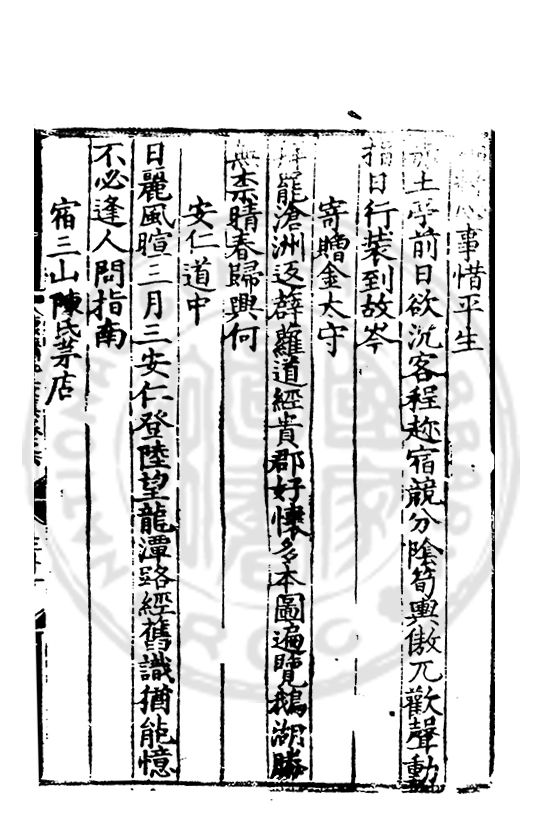 事惜平生
土亭前日欲沉客程趂宿競分陰筍輿傲兀歡聲動
指日行装到故岑
寄贈金太守
罷滄洲返薜蘿道經貴郡好懷多本圖遍覽鵝湖勝
無柰晴春歸興何
安仁道中
日麗風暄三月三安仁登陸望龍潭路經舊識猶能憶
不必逢人問指南
宿三山陳氏茅店